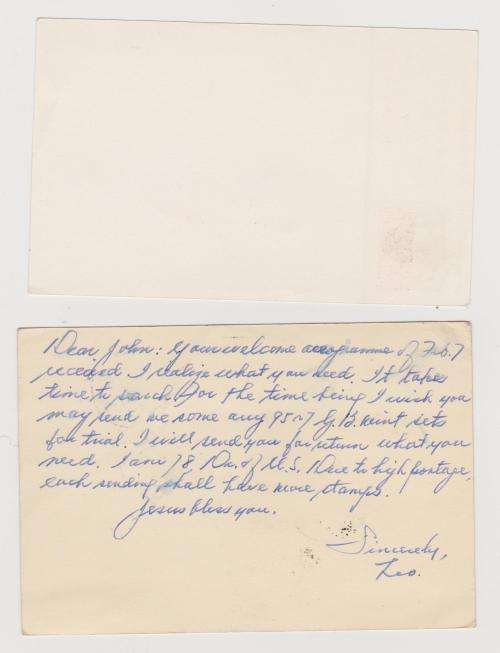 Dear John: Your welcome aerogramme of Feb. 7
received. I realize what you need. It takes
time to search. For the time being I wish you
may send me some any 95 - 7 G.B. mint sets
for trial. I will send you in return what you
need. I am 78, Dr. of U.S. Due to high postage,
each sending shall have more stamps.
Jesus bless you.
Sincerely,
Leo.